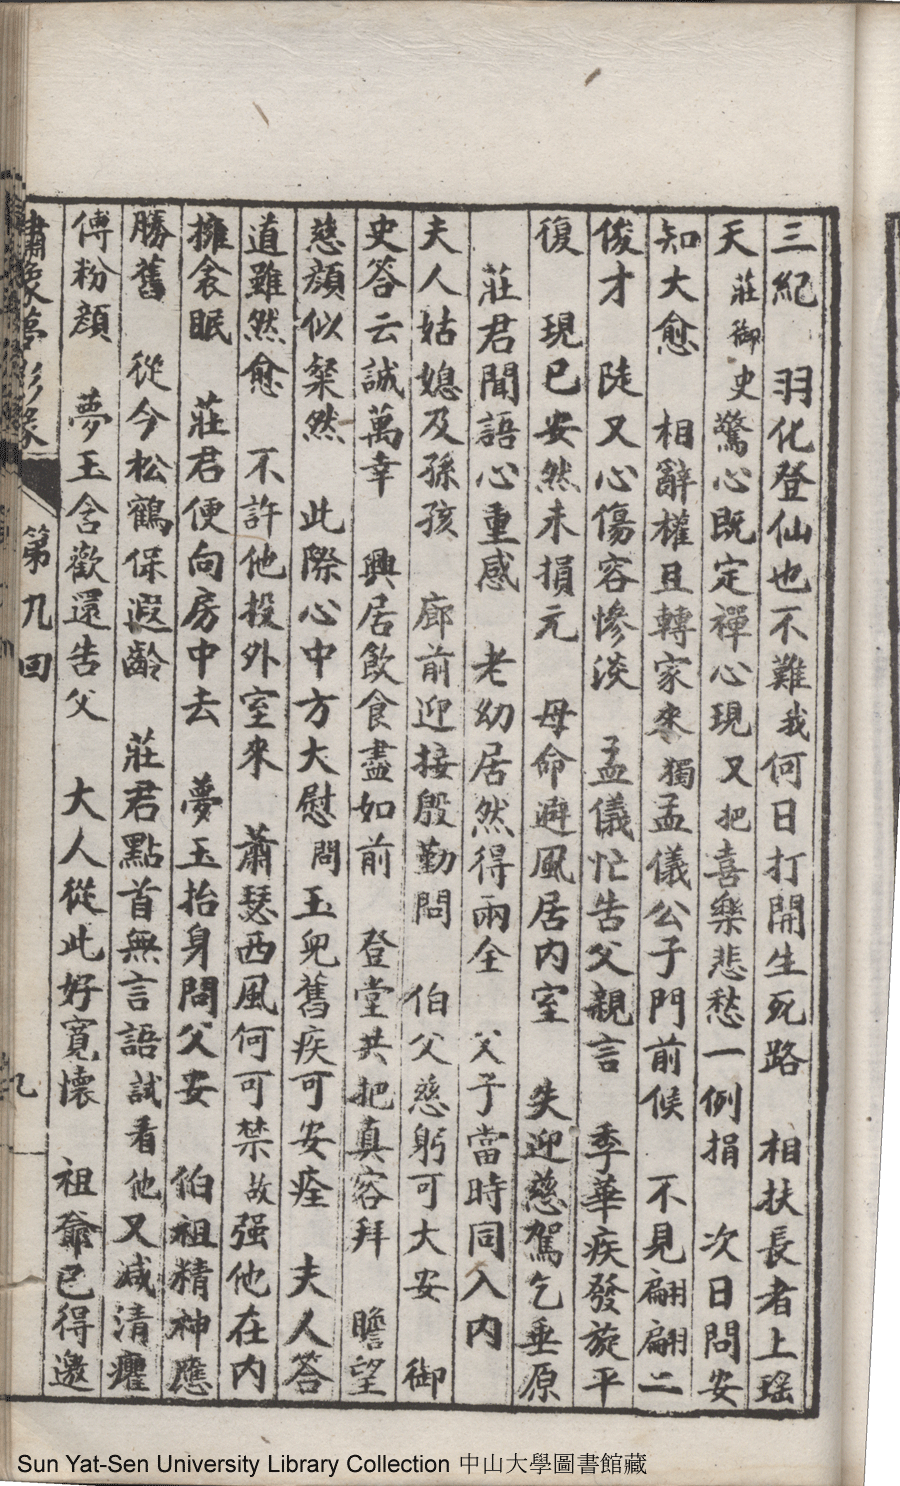 三紀　羽化登仙也不難我何日打開生死路　相扶長者上瑤
天　莊御史驚心既定禪心現又把喜樂悲愁一例捐　次日問安
知大愈　相辭權且轉家來獨孟儀公子門前候　不見翩翩二
俊才　陡又心傷容慘淡　孟儀忙告父親言　季華疾發旋平
復　現已安然未損元　母命避風居内室　失迎慈駕乞垂原
　莊君聞語心重感　老幼居然得兩全　父子當時同入内
夫人姑媳及孫孩　廊前迎接殷勤問　伯父慈躬可大安　御
史答云誠萬幸　興居飲食盡如前　登堂共把真容拜　瞻望
慈顔似粲然　此際心中方大慰問玉兒舊疾可安痊　夫人答
道雖然愈　不許他投外室來　蕭瑟西風何可禁故强他在内
擁衾眠　莊君便向房中去　夢玉抬身問父安　伯祖精神應
勝舊　從今松鶴保遐齡　莊君點首無言語試看他又減清癯
傅粉顔　夢玉含歡還告父　大人從此好寬懷　祖爺已得邀
夢影緣　第九回　九
Sun Yat-Sen University Library Collection 中山大學圖書館藏